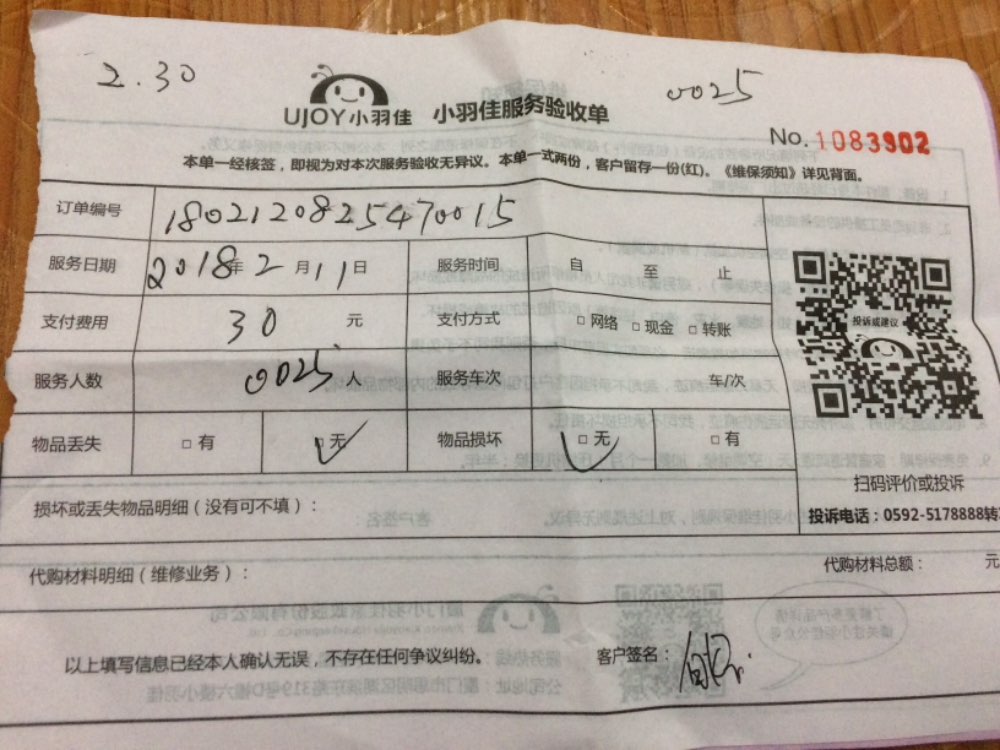 2.30
0025
UJOY小羽佳 小羽佳服务验收单
No.1083902
本单一经核签，即视为对本次服务验收无异议。本单一式两份，客户留存一份(红)。《维保须知》详见背面。
订单编号 1802120825470015
服务日期 2018年2月11日 服务时间 自 至 止
支付费用 30 元 支付方式 □网络 □现金 □转账
投诉或建议
服务人数 0025人 服务车次 车/次
物品丢失 □有 □无 物品损坏 □无 □有
扫码评价或投诉
损坏或丢失物品明细（没有可不填）：
投诉电话：0592-5178888转
代购材料明细（维修业务）： 代购材料总额： 元
以上填写信息已经本人确认无误，不存在任何争议纠纷。 客户签名：